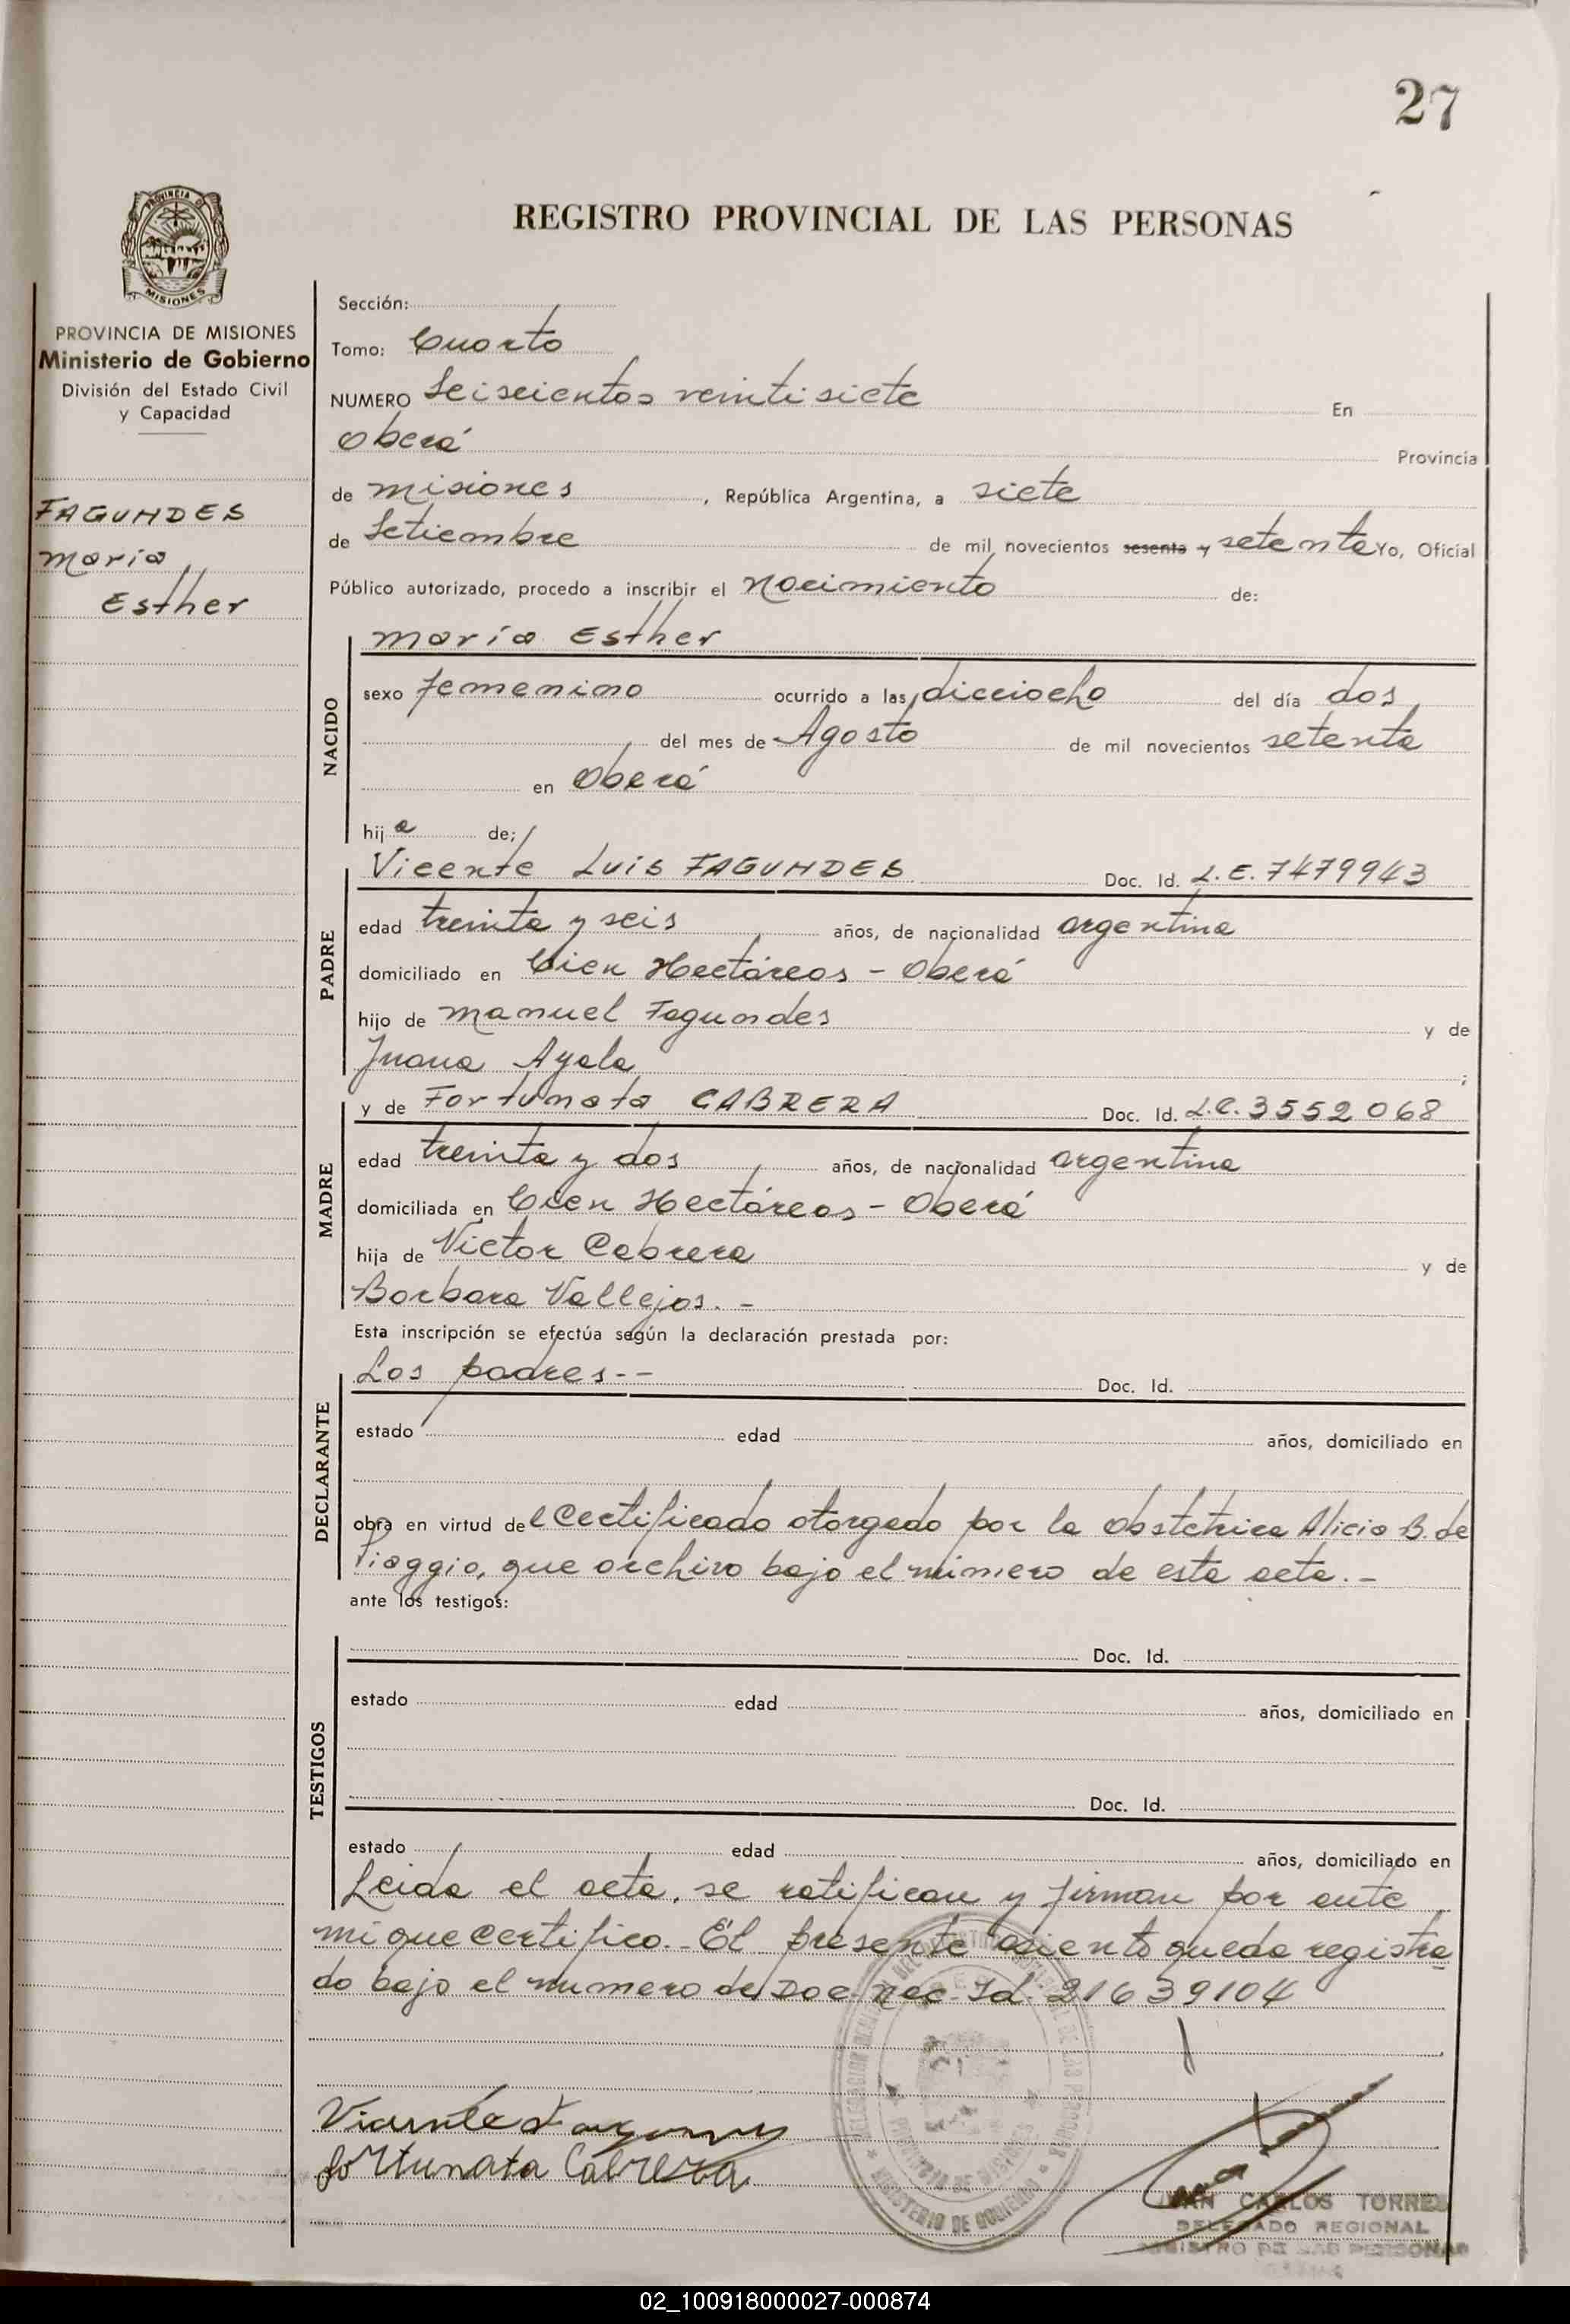 27
REGISTRO PROVINCIAL DE LAS PERSONAS
PROVINCIA DE MISIONES
Ministerio de Gobierno
División del Estado Civil
y Capacidad
FAGUNDES
Maria
Esther
Sección:
Tomo: Cuarto
NUMERO Seiscientos veintisiete En
Oberá Provincia
de Misiones, República Argentina, a siete
de Setiembre de mil novecientos sesenta y setenta Yo, Oficial
Público autorizado, procedo a inscribir el Nacimiento de:
María Esther
NACIDO
sexo femenino ocurrido a las dieciocho del día dos
del mes de Agosto de mil novecientos setenta
en Oberá
hija de;
Vicente Luis FAGUNDES Doc. Id. L.E. 7479943
PADRE
edad treinta y seis años, de nacionalidad argentina
domiciliado en Cien Hectáreas - Oberá
hijo de Manuel Fagundes y de
Juana Ayala ;
y de Fortunata CABRERA Doc. Id. L.C. 3552068
MADRE
edad treinta y dos años, de nacionalidad argentina
domiciliada en Cien Hectáreas - Oberá
hija de Victor Cabrera y de
Barbara Vallejos. -
Esta inscripción se efectúa según la declaración prestada por:
Los padres - - Doc. Id.
DECLARANTE
estado edad años, domiciliado en
obra en virtud del Certificado otorgado por la obstetrica Alicia B. de
Piaggio, que archivo bajo el número de esta acta. -
ante los testigos:
Doc. Id.
TESTIGOS
estado edad años, domiciliado en
Doc. Id.
estado edad años, domiciliado en
Leida el acta, se ratifican y firman por ante
mi que certifico. - El presente asiento queda registra
do bajo el numero de Doc. Nac. Id. 21639104
Vicente
Fortunata Cabrera
JUAN CARLOS TORRES
DELEGADO REGIONAL
REGISTRO DE LAS PERSONAS
PROVINCIA DE MISIONES
MINISTERIO DE GOBIERNO
02_100918000027-000874